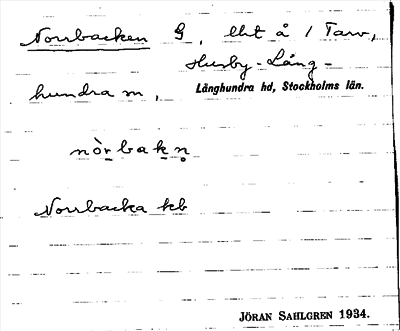 Norrbacken G, lht å 1 Tarv,
Husby-Lång-
hundra sn,
Långhundra hd, Stockholms län.
nòr bak n̥
Norrbacka kb
JÖRAN SAHLGREN 1934.